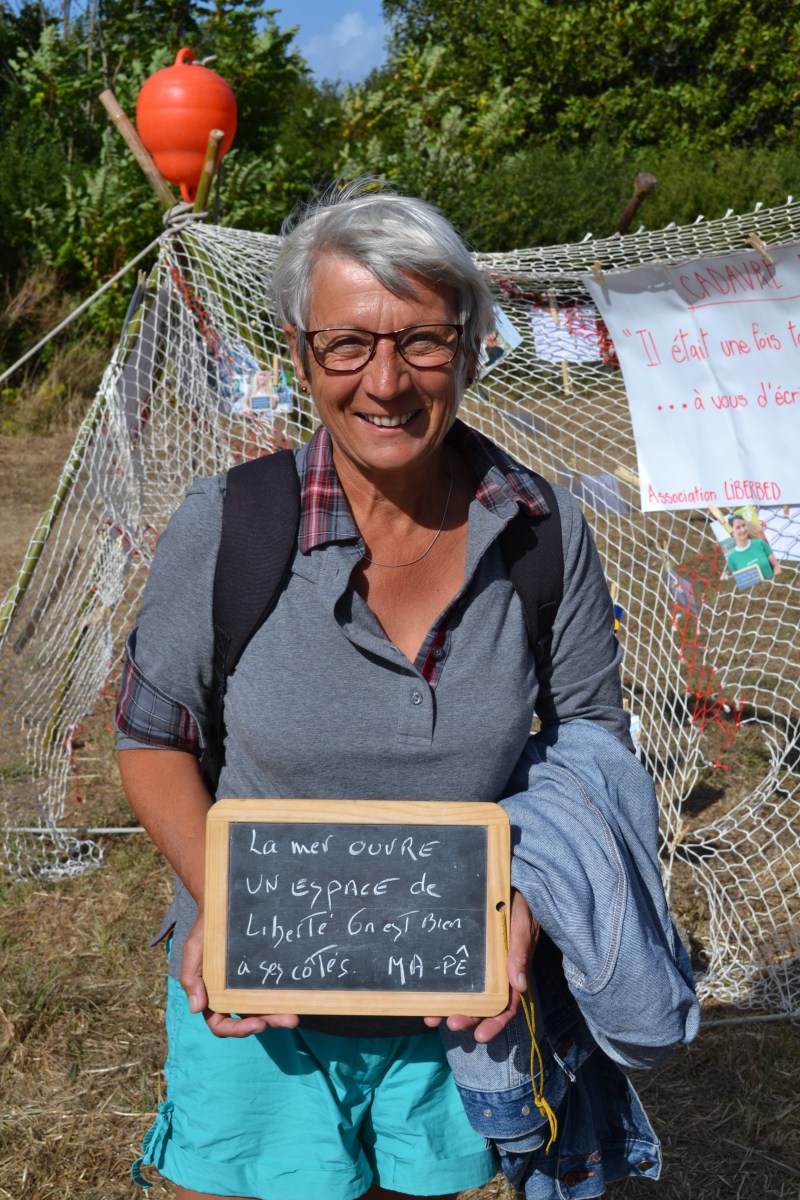 CADAVRE
"Il était une fois
...à vous d'écri
Association LIBERBED
La mer OUVRE
UN ESPACE de
Liberté. On est Bien
à ses côtés. MA-PÊ